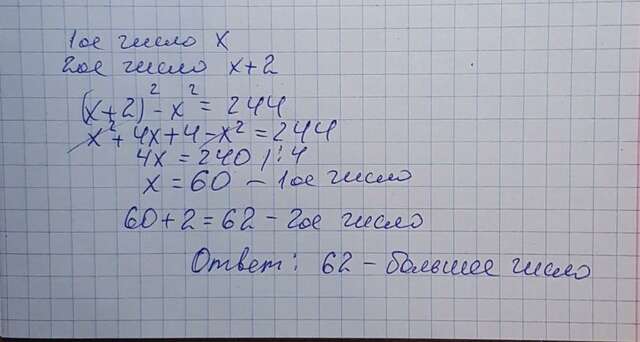 1ое число x
2ое число x+2
(x+2)²-x²=244
x²+4x+4-x²=244
4x=240 /:4
x=60 - 1ое число
60+2=62 - 2ое число
Ответ: 62 - большее число